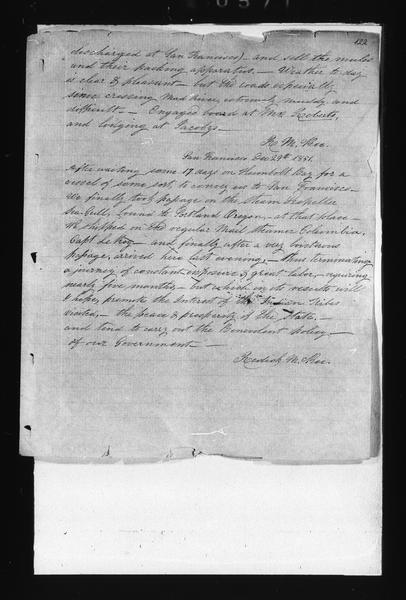 122
discharged at San Francisco) and sell the mules
and their packing apparatus. — Weather to day
is clear & pleasant — but the roads especially
since crossing Mad River, extremely muddy and
difficult. — Engaged board at Mrs Roberts,
and lodging at Jacobys.
R. M. Kee.
San Francisco Dec 29th 1851.
After waiting some 17 days on Humboldt Bay for a
vessel of some sort, to convey us to San Francisco
We finally took passage on the Steam Propeller
Sea Gull, bound to Portland Oregon, — at that place
We shipped in the regular Mail Steamer Columbia,
Capt and finally after a very boisterous
passage, arrived here last evening, — thus terminating
a journey of constant exposure & great labor, requiring
nearly five months, — but which in its results will
I hope, promote the Interest of the Indian Tribes
visited, — the peace & prosperity of the State, —
and tend to carry out the Benevolent policy
of our Government —
Redick M. Kee.